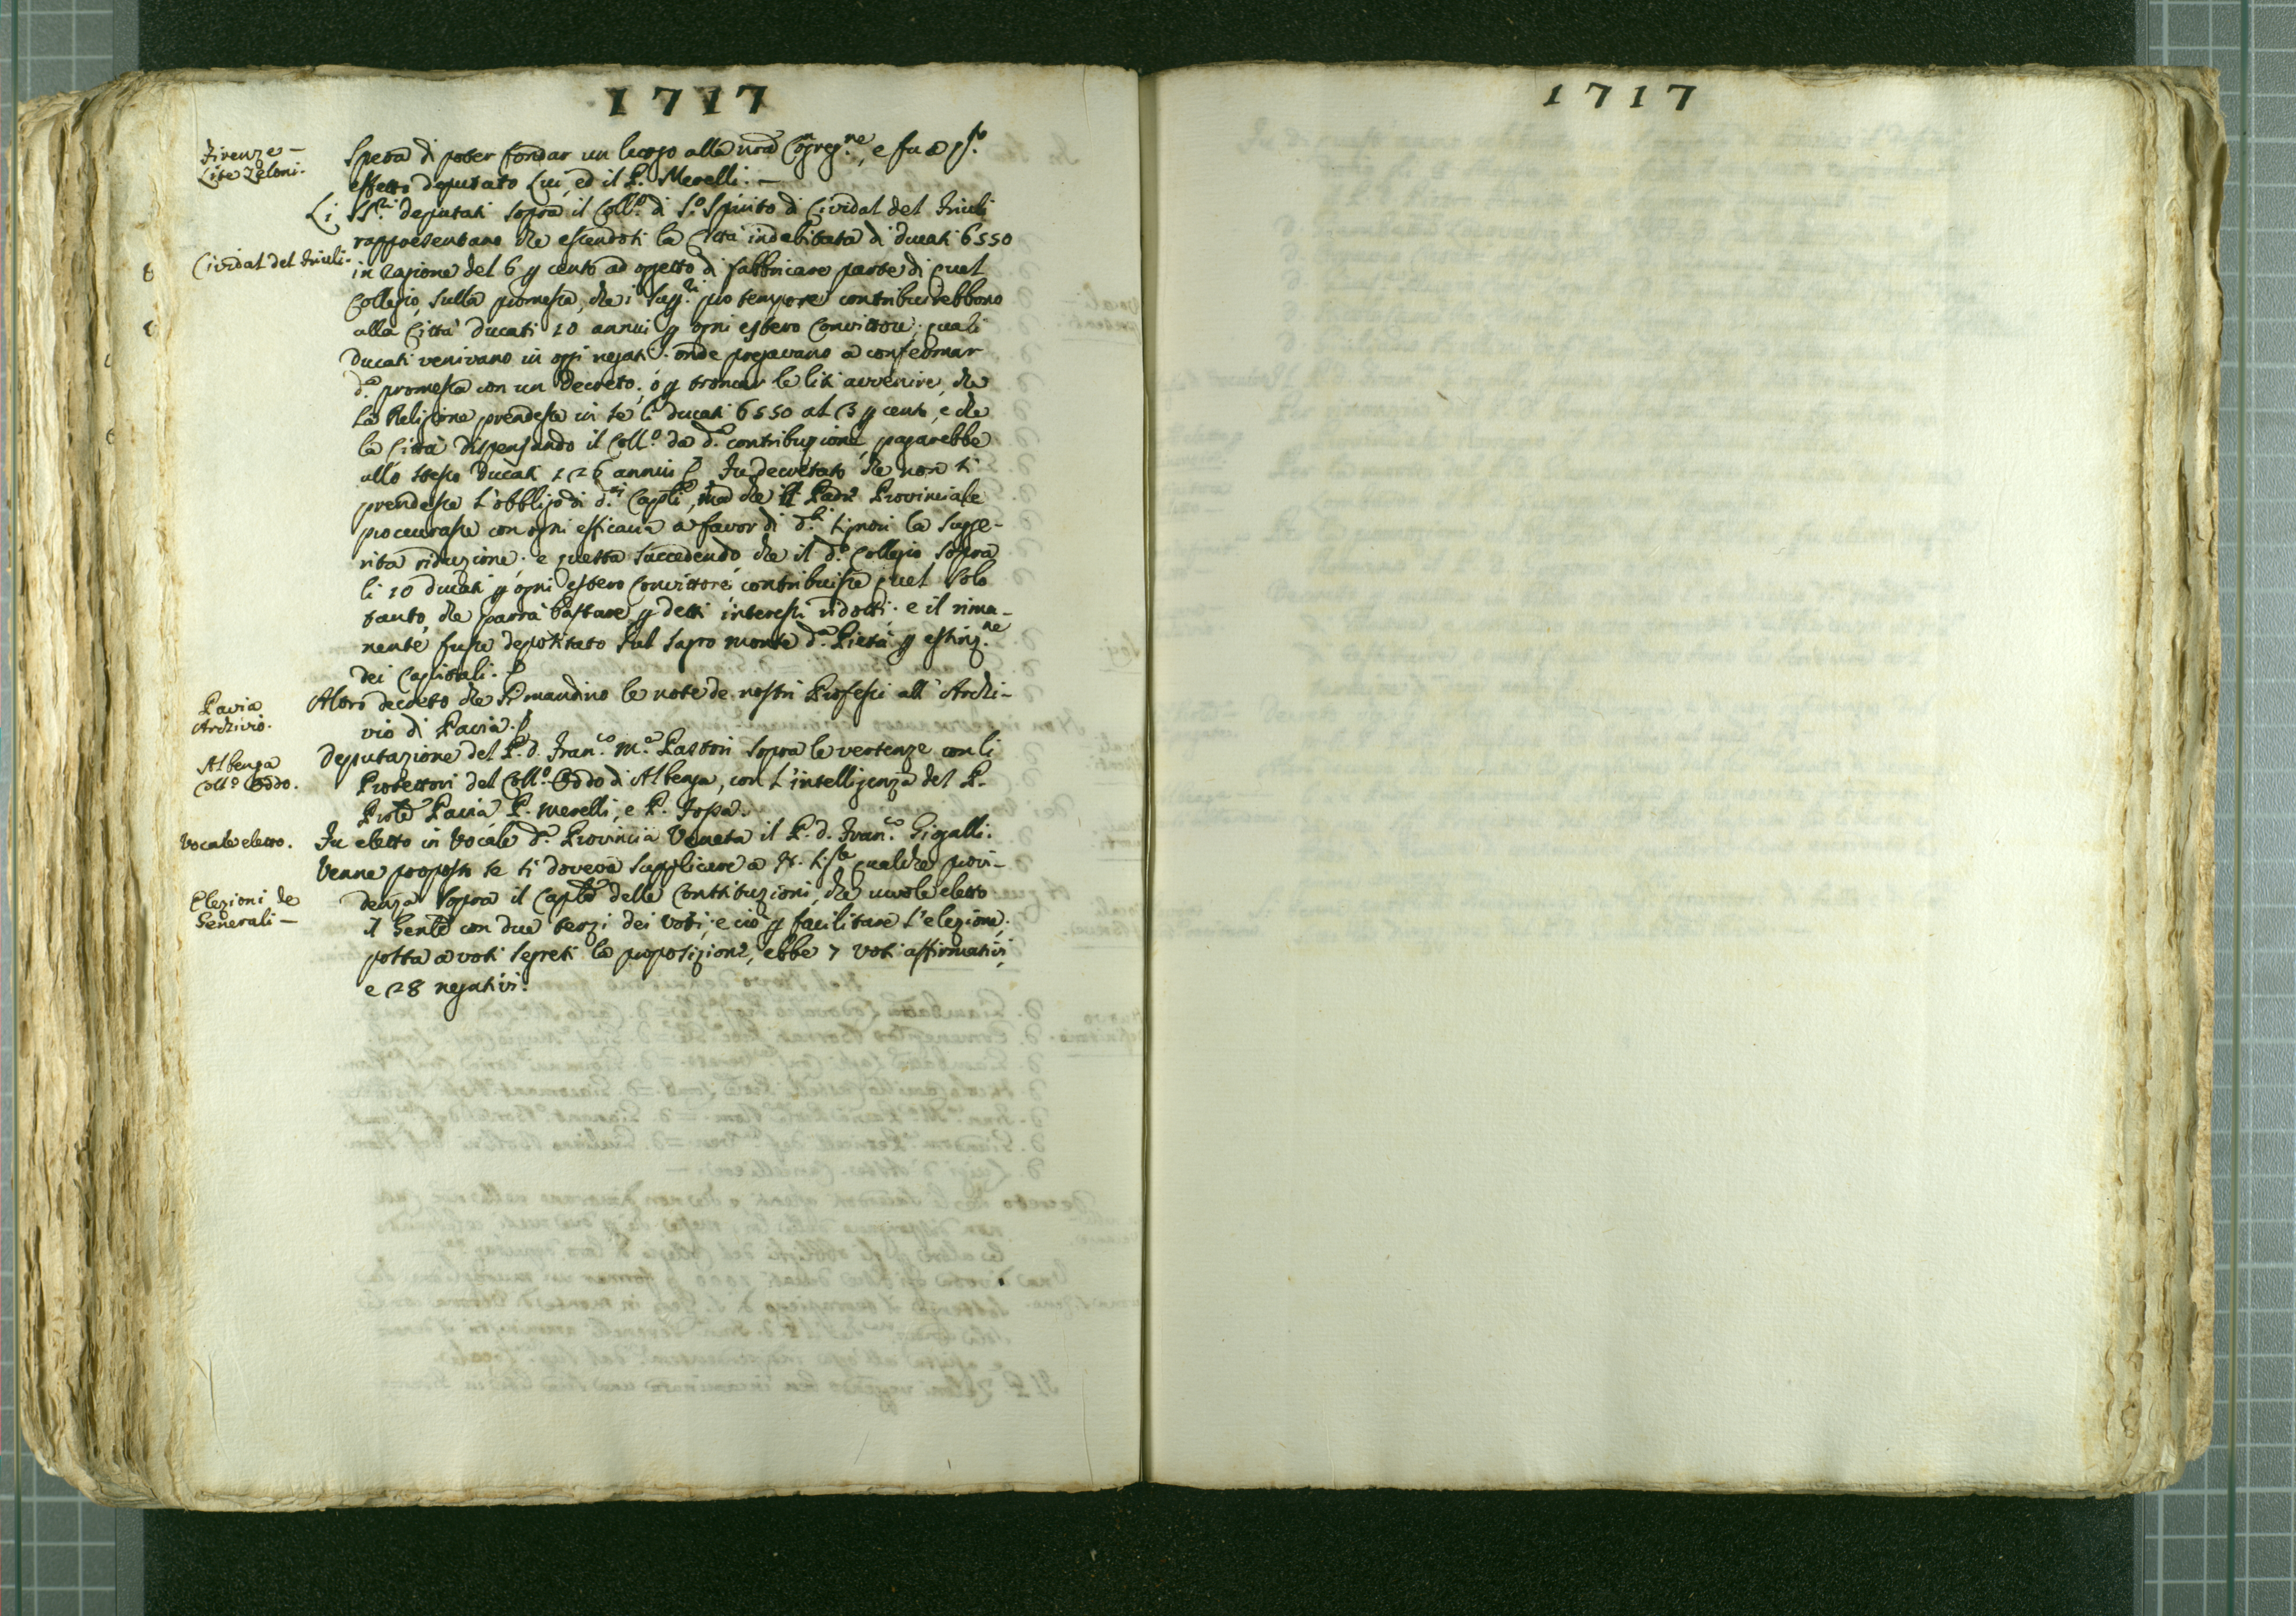 1717
Firenze –
Lite Zeloni.
Spera di poter fondar un luogo alla nrã Cõgreg.ne, e fu a q.sto
effetto deputato Lui, ed il P. Merelli. —
Li SS.ri deputati sopra il Coll.o di S.o Spirito di Cividal del Friuli
rappresentano che essendosi la Città indebitata di ducati 6550
Cividal del Friuli.
in ragione del 6 p cento ad oggetto di fabbricare parte di quel
Collegio, sulla promessa, che i Sup.ri pro tempore contribuirebbono
alla Città ducati 10 annui p ogni estero Convittore; quali
ducati venivano in oggi negati: onde pregavano a confermar
d.a promessa con un Decreto; ò p troncar le liti avvenire, che
la Religione prendesse in se li ducati 6550 al 3 p cento, e che
la Città dispensando il Coll.o da d.a contribuzione, pagarebbe
allo stesso ducati 126 annui. Fu decretato che non si
prendesse l'obbligo di d.ti Capli, ma che il Padre Provinciale
procurasse con ogni efficacia a favor di d.ti signori la sugge-
rita riduzione: e questa succedendo, che il d.o Collegio sopra
li 10 ducati p ogni estero Convittore, contribuisse quel solo
tanto, che parrà bastare p detti interessi ridotti: e il rima-
nente fusse depositato sul sagro monte d.a Pietà p estinz.ne
dei Capitali.
Pavia
Archivio.
Altro decreto che si mandino le note de nostri Professi all' Archi-
vio di Pavia.
Albenga
Coll.o Oddo.
Deputazione del P. d. Fran.co M.a Pastori sopra le vertenze con li
Protettori del Coll.o Oddo di Albenga, con l'intelligenza del P.
Prõle Pavia, P. Merelli, e P.
Vocale eletto.
Fu eletto in Vocale d.a Provincia Veneta il P. d. Fran.co Gigalli.
Venne proposto se si doveva supplicare a N. S.re qualche provi-
Elezioni de
Generali –
denza sopra il Caplo delle Constituzioni, che vuole eletto
il Genle con due terzi dei Voti; e ciò p facilitare l'elezione;
posta a voti segreti la proposizione, ebbe 7 voti affirmativi,
e 28 negativi.
1717